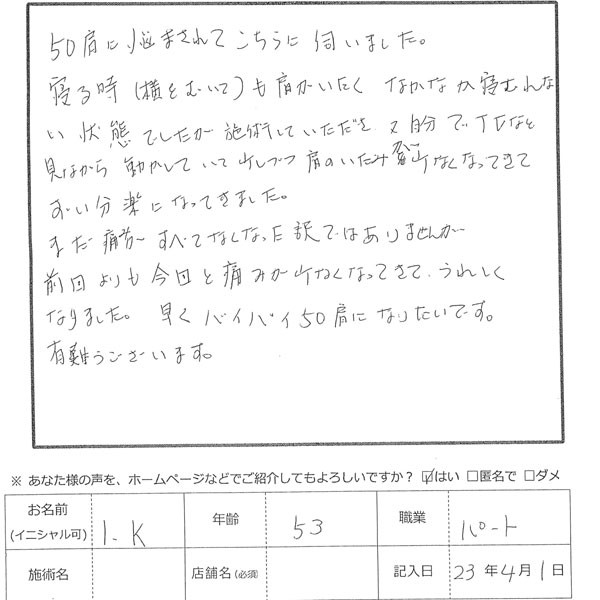 50肩に悩まされてこちらに伺いました。
寝る時(横をむいて)も肩がいたく なかなか寝むれな
い状態でしたが施術していただき 又自分でTVなど
見ながら動かしていて少しづつ肩のいたみが少なくなってきて
ずい分楽になってきました。
まだ痛みがすべてなくなった訳ではありませんが
前回よりも今回と痛みが少なくなってきて、うれしく
なりました。早くバイバイ50肩になりたいです。
有難うございます。
※ あなた様の声を、ホームページなどでご紹介してもよろしいですか? ☑はい □匿名で □ダメ
お名前 (イニシャル可) I.K 年齢 53 職業 パート
施術名 店舗名(必須) 記入日 23年4月1日